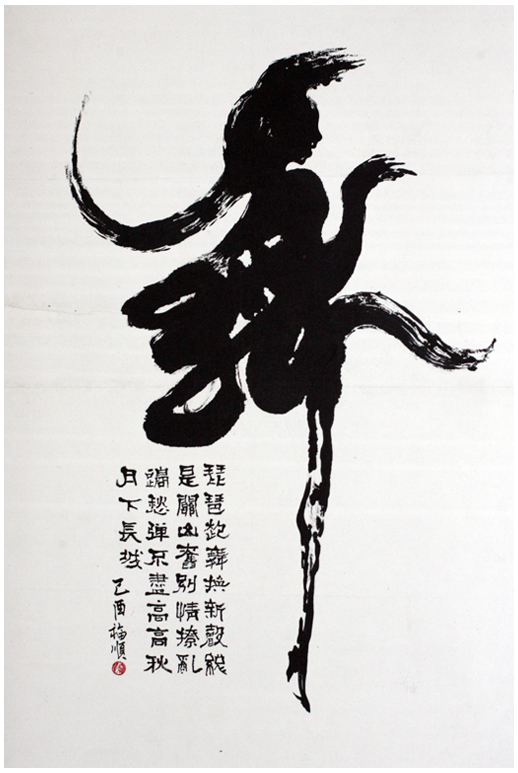 琵琶起舞換新聲總
是關山舊別情撩亂
邊愁彈不盡高高秋
月下長城
己酉 福順